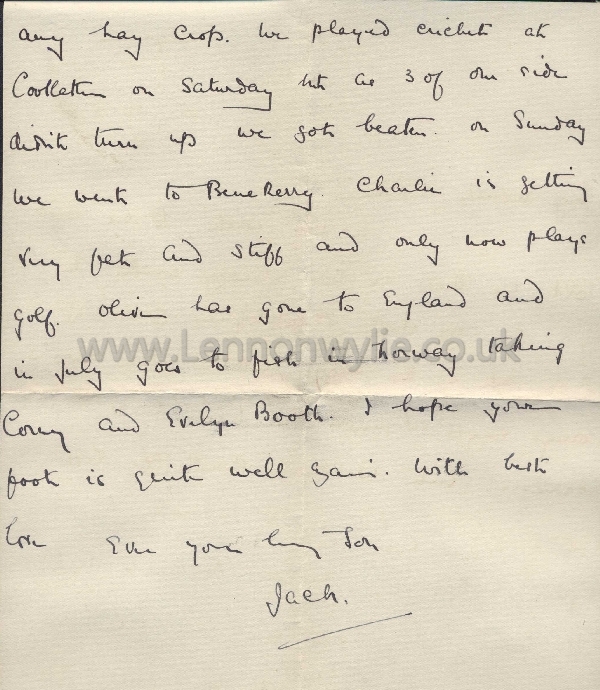 any hay crop. We played cricket at
Coollattin on Saturday but as 3 of our side
didn't turn up we got beaten. on Sunday
we went to Bene Kerry. Charlie is getting
very fat and stiff and only now plays
golf. Oliver has gone to England and
www.Lennonwylie.co.uk
in July goes to fish in Norway taking
and Evelyn Booth. I hope your
foot is quite well again. With best
love Ever your loving Son
Jack.